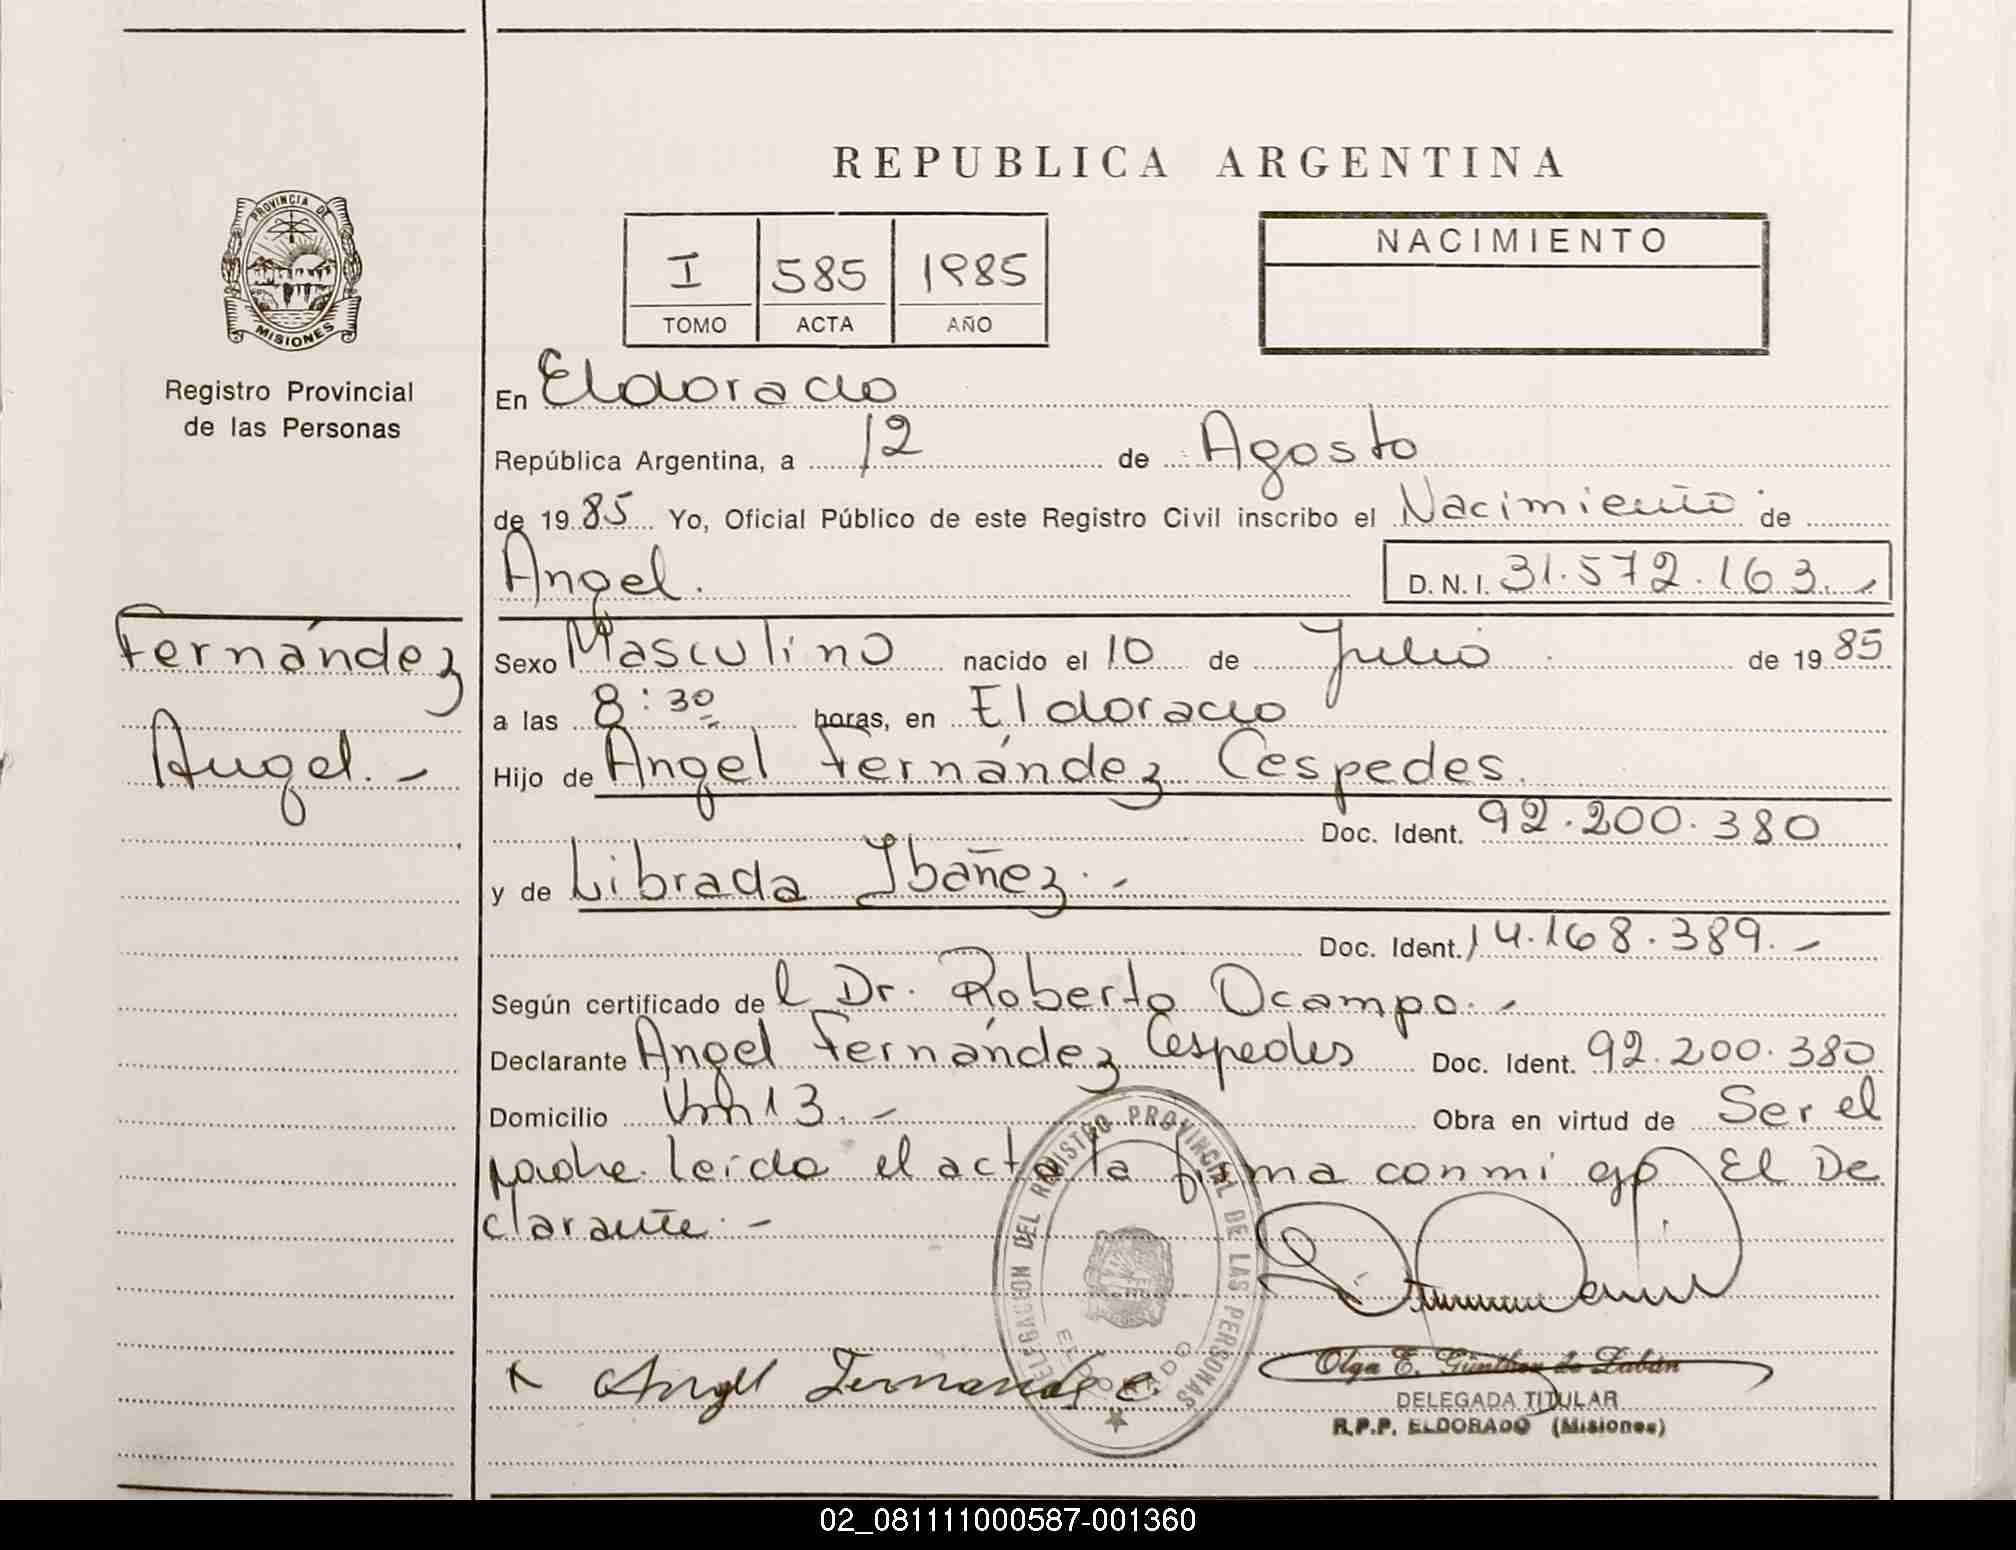 REPUBLICA ARGENTINA
PROVINCIA DE
MISIONES
Registro Provincial
de las Personas
I 585 1985
TOMO ACTA AÑO
NACIMIENTO
En Eldorado
República Argentina, a 12 de Agosto
de 1985 Yo, Oficial Público de este Registro Civil inscribo el Nacimiento de
Angel. D. N. I. 31.572.163.-
Fernández
Angel.-
Sexo Masculino nacido el 10 de Julio de 1985
a las 8:30 horas, en Eldorado
Hijo de Angel Fernández Cespedes.
Doc. Ident. 92.200.380
y de Librada Ibáñez.-
Doc. Ident. 14.168.389.-
Según certificado del Dr. Roberto Ocampo.-
Declarante Angel Fernández Cespedes Doc. Ident. 92.200.380
Domicilio Km 13.- Obra en virtud de Ser el
padre. leída el acta la firma conmigo El De
clarante.-
DELEGACION DEL REGISTRO PROVINCIAL DE LAS PERSONAS
ELDORADO
x Angel Fernandez C.
Olga E. Günther de Labán
DELEGADA TITULAR
R.P.P. ELDORADO (Misiones)
02_081111000587-001360